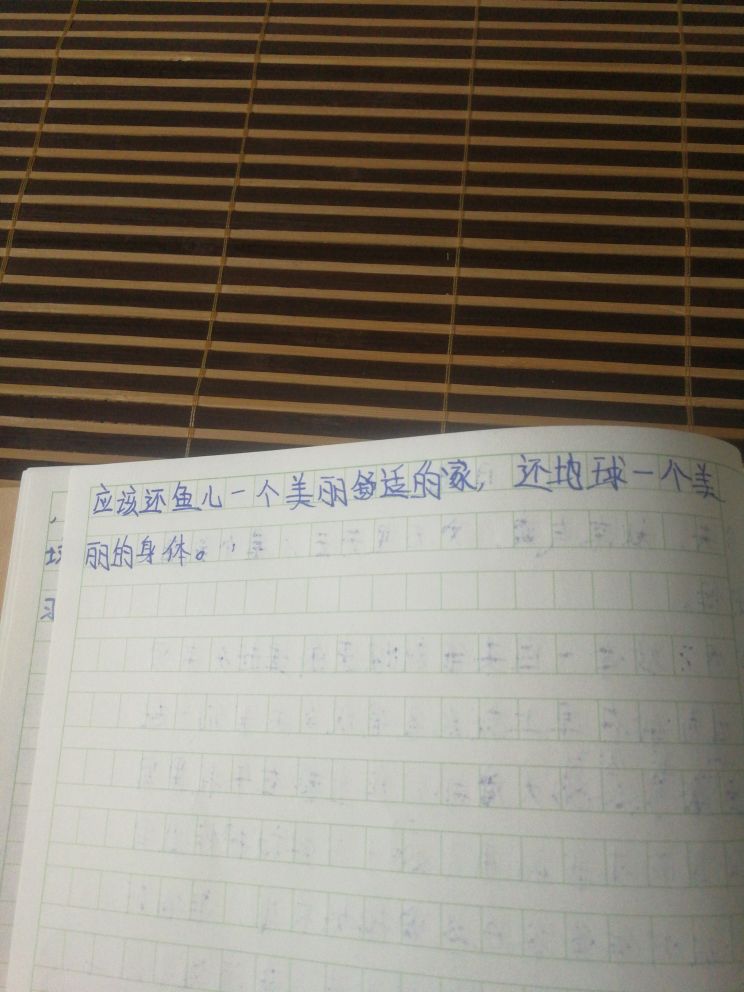 应该还鱼儿一个美丽舒适的家，还地球一个美
丽的身体。